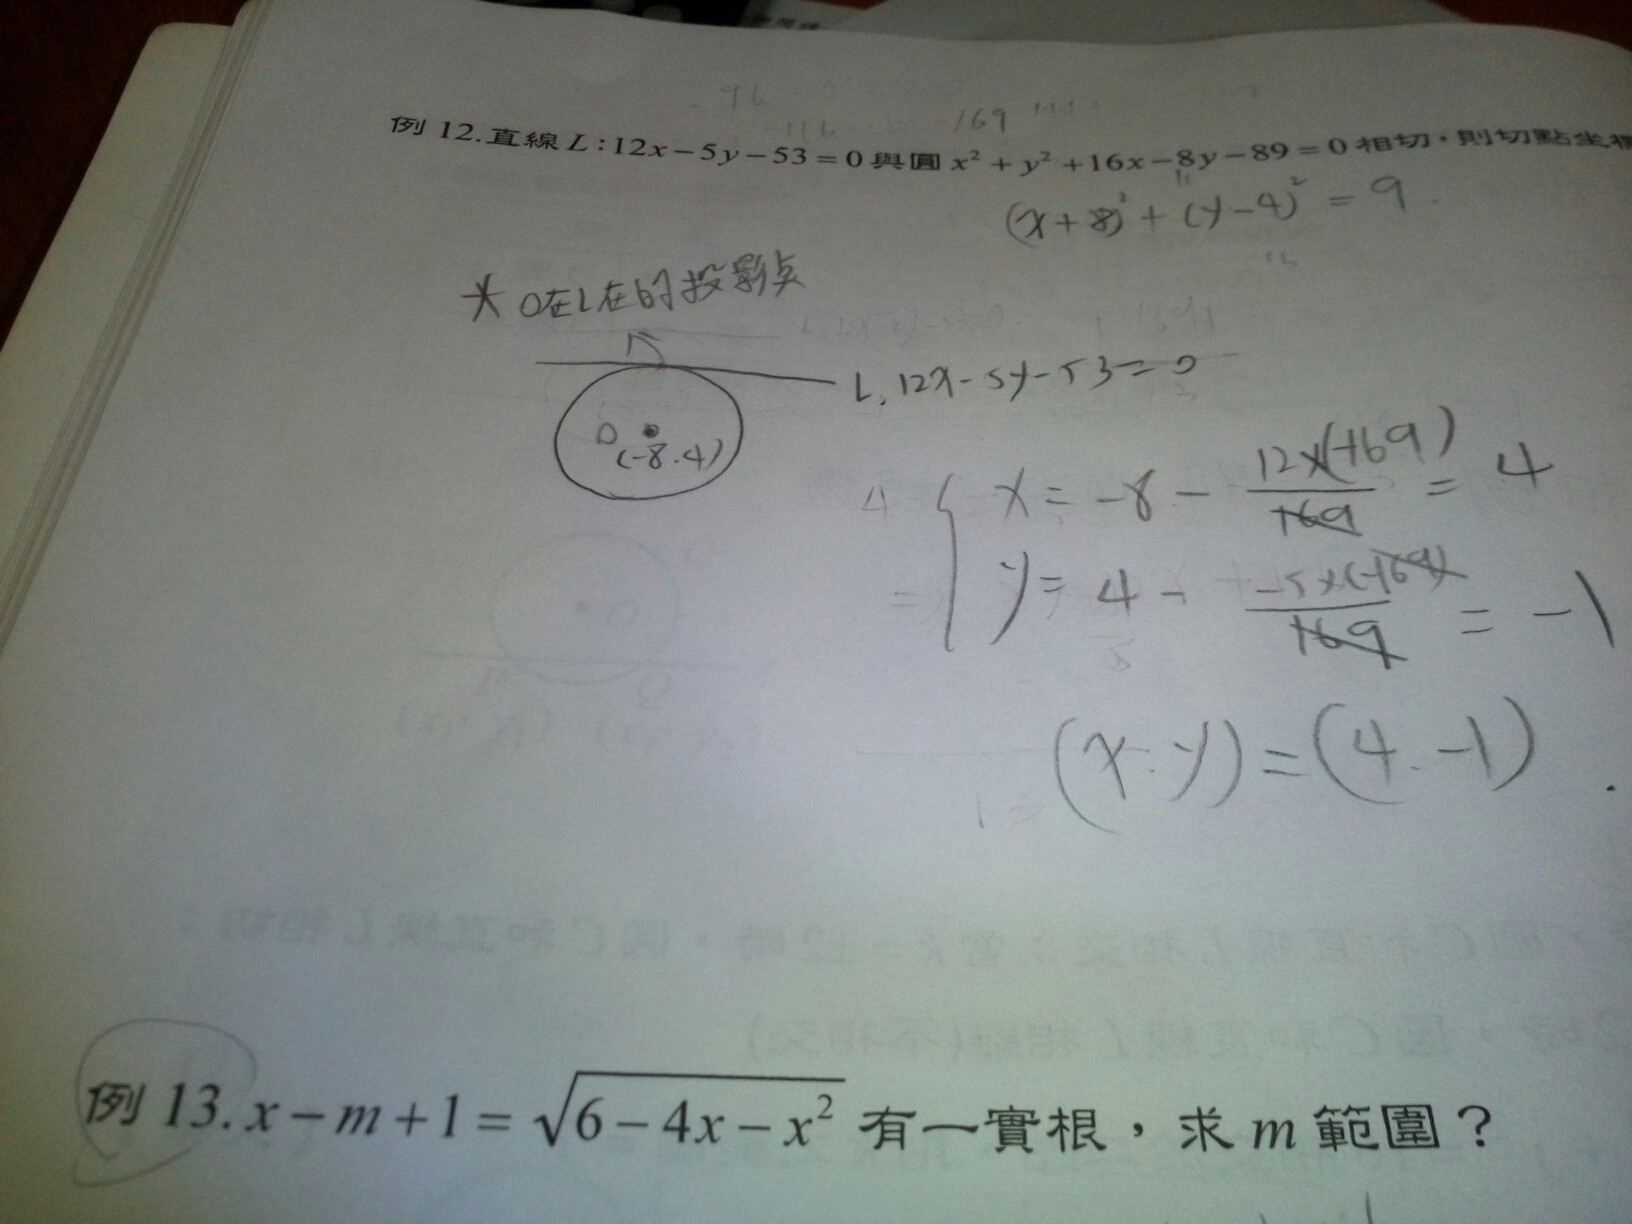 例 12. 直線 L : 12x − 5y − 53 = 0 與圓 x² + y² + 16x − 8y − 89 = 0 相切，則切點坐標
169
(x+8)² + (y−4)² = 9
* O在L在的投影点
L. 12x − 5y − 53 = 0
O (−8.4)
x = −8 − 12×(−169)/169 = 4
y = 4 − −5×(−169)/169 = −1
(x.y) = (4.−1)
例 13. x − m + 1 = √(6 − 4x − x²) 有一實根，求 m 範圍？